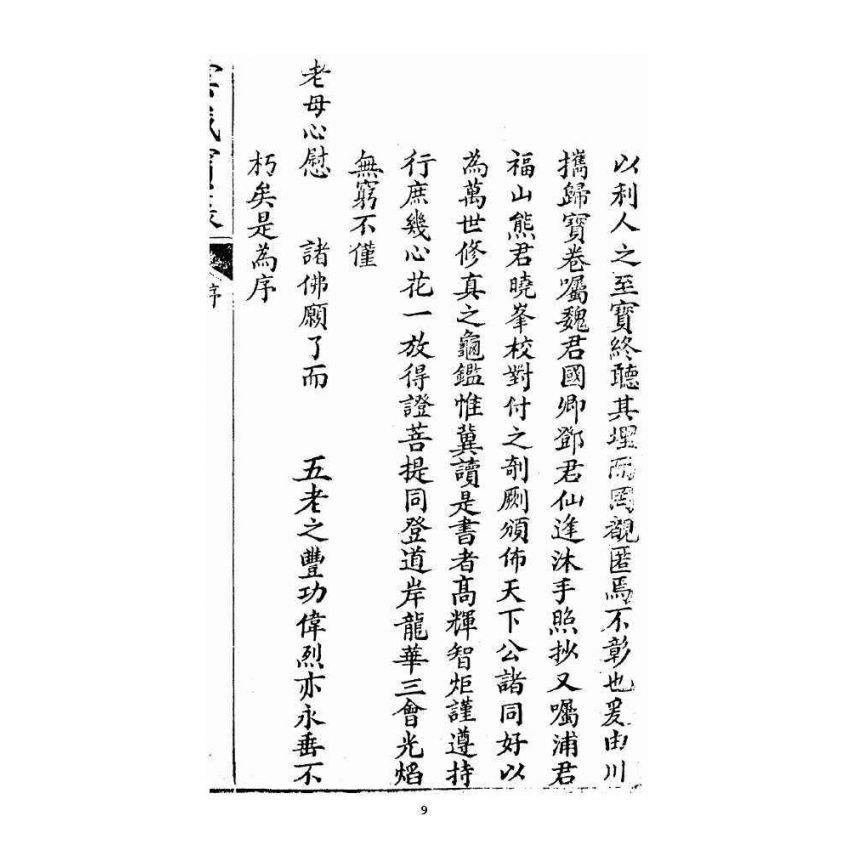 以利人之至寶終聽其埋而罔覩匿焉不彰也爰由川
攜歸寶卷囑魏君國卿鄧君仙逢沐手照抄又囑浦君
福山熊君曉峯校對付之剞劂頒佈天下公諸同好以
為萬世修真之龜鑑惟冀讀是書者高輝智炬謹遵持
行庶幾心花一放得證菩提同登道岸龍華三會光焰
無窮不僅
老母心慰 諸佛願了而 五老之豐功偉烈亦永垂不
朽矣是為序
序
9